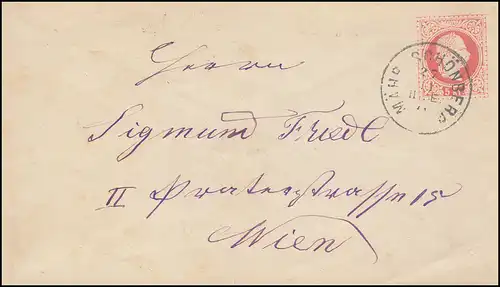 Herrn
Sigmund Friedl
II Praterstrasse 15
Wien
MÄHR. SCHÖNBERG